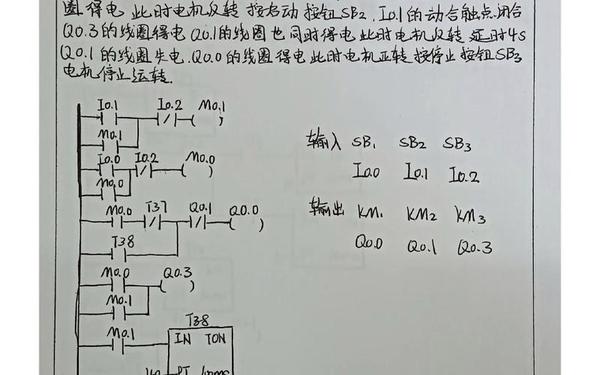 圈得电 此时电机反转 按启动按钮SB2, I0.1的动合触点闭合
Q0.3的线圈得电 Q0.1的线圈也同时得电 此时电机反转 延时4s
Q0.1的线圈失电. Q0.0的线圈得电 此时电机正转 按停止按钮SB3
电机停止运转.
I0.1 I0.2 M0.1
M0.1
I0.0 I0.2 M0.0
M0.0
M0.0 T37 Q0.1 Q0.0
T38
M0.0 Q0.3
M0.1
M0.1 T38
IN TON
40 PT 100ms
输入 SB1 SB2 SB3
I0.0 I0.1 I0.2
输出 KM1 KM2 KM3
Q0.0 Q0.1 Q0.3